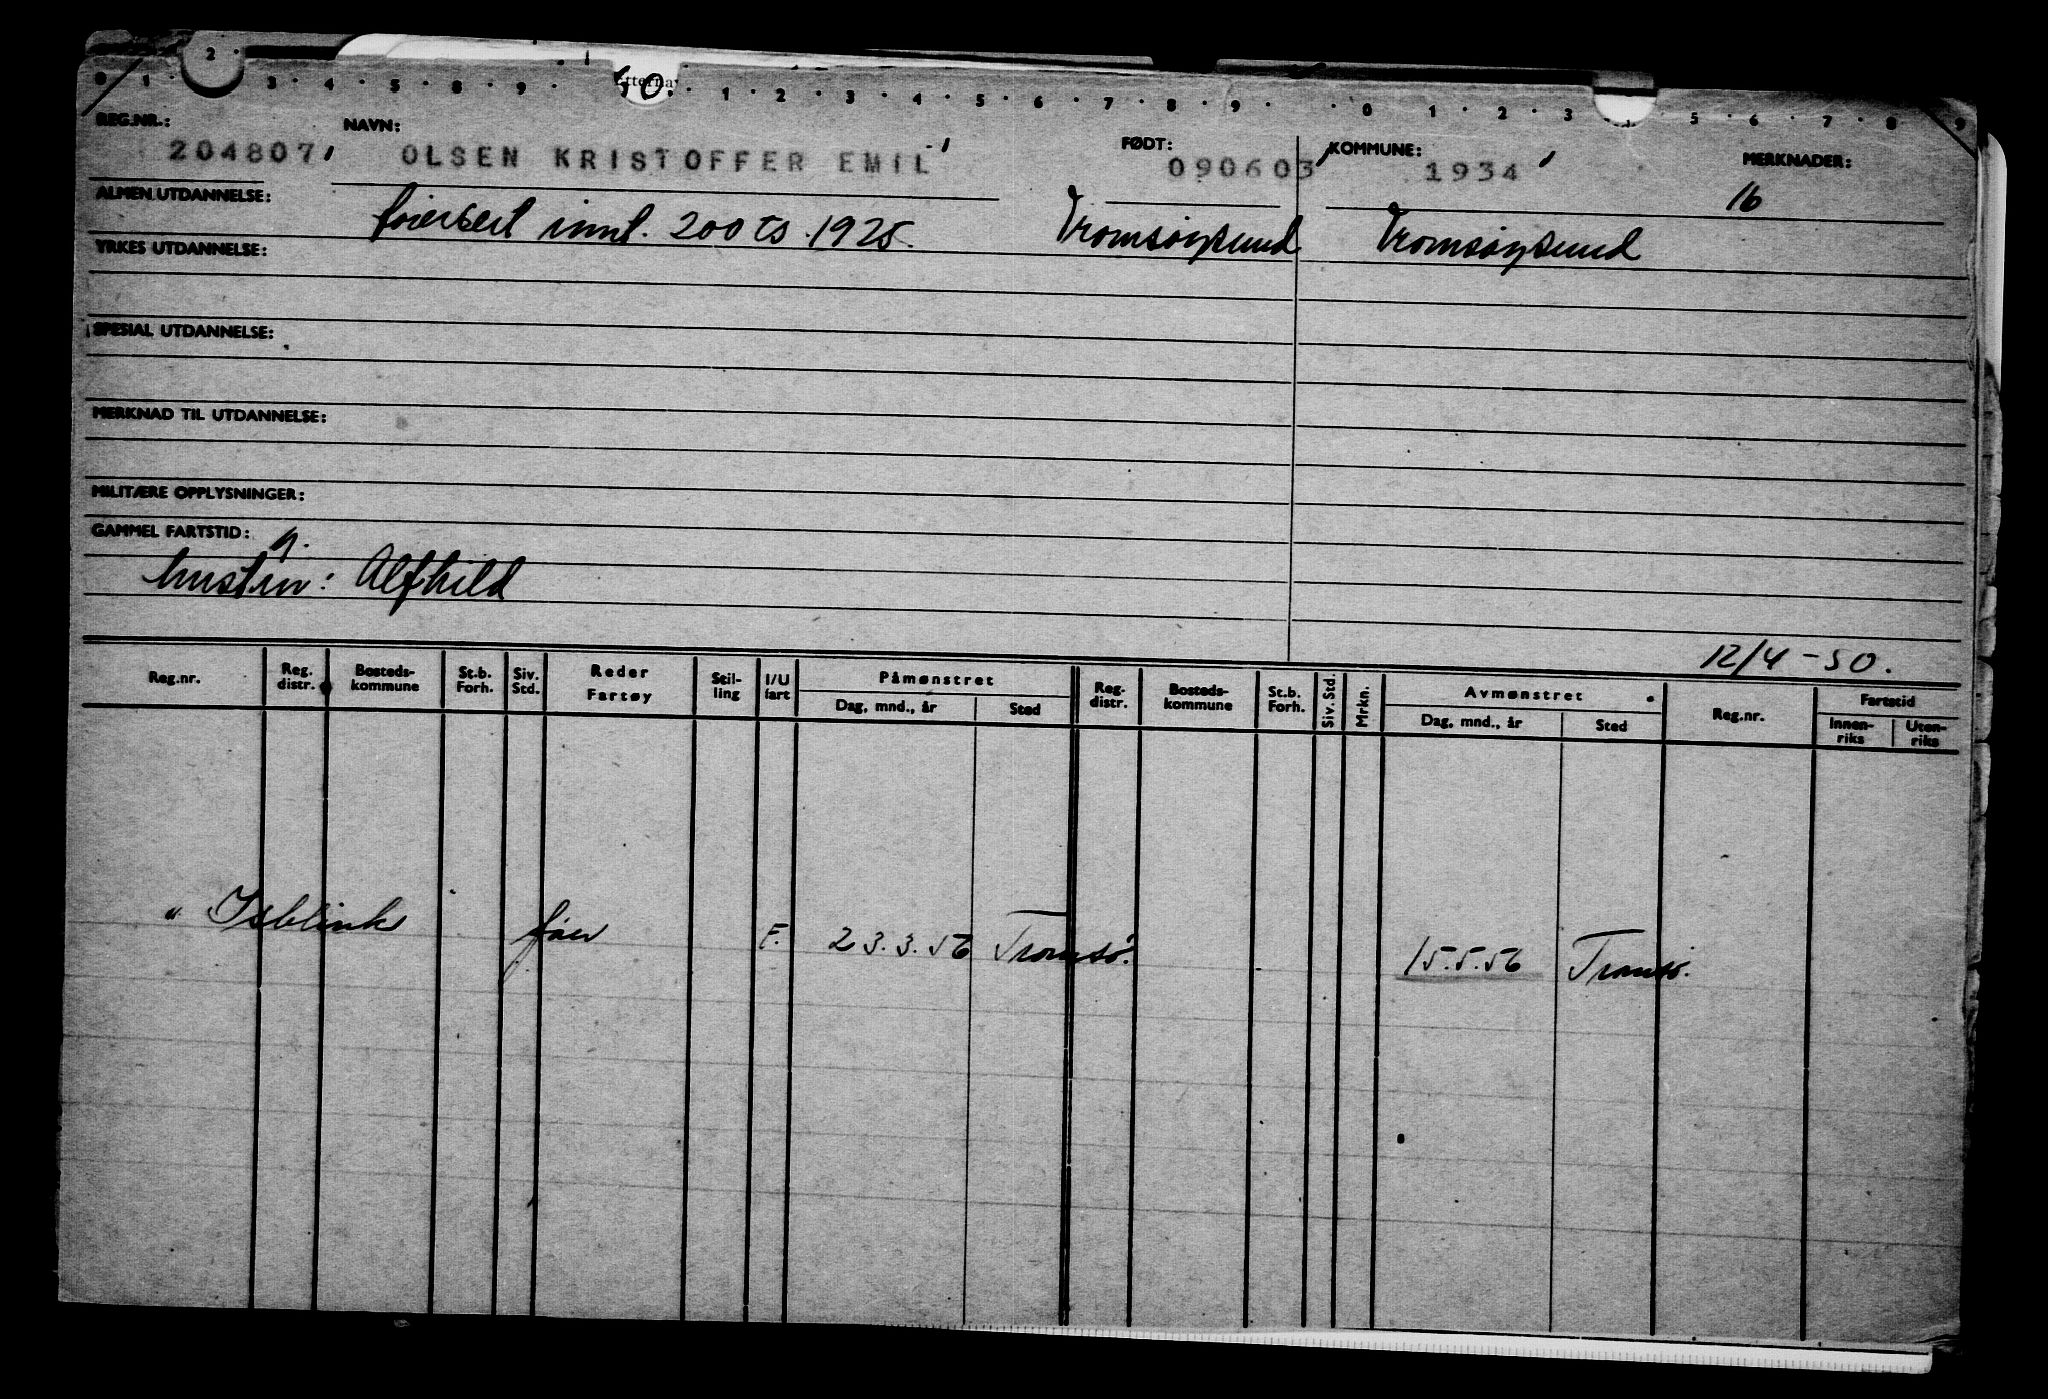 2
0 1 3 4 5 8 9 10. 1 2 3 4 5 6 7 8 9 0 1 2 3 5 6 7 8 9
REG.NR.: NAVN: FØDT: KOMMUNE: MERKNADER:
204807 OLSEN KRISTOFFER EMIL 090603 1934 16
ALMEN UTDANNELSE:
innt. 200 ts. 1925. Tromsøysund Tromsøysund
YRKES UTDANNELSE:
SPESIAL UTDANNELSE:
MERKNAD TIL UTDANNELSE:
MILITÆRE OPPLYSNINGER:
GAMMEL FARTSTID:
g.
hustru: Alfhild
12/4-50.
Reg.nr. Reg. distr. Bosteds-kommune St.b. Forh. Siv. Std. Reder Fartøy Stil-ling I/U fart Påmønstret Dag, mnd., år Sted Reg. distr. Bosteds-kommune St.b. Forh. Siv. Std. Mrkn. Avmønstret Dag, mnd., år Sted Reg.nr. Fartstid Innen-riks Uten-riks
" Isblink F. 23.3.56 Tromsø. 15.5.56 Tromsø.